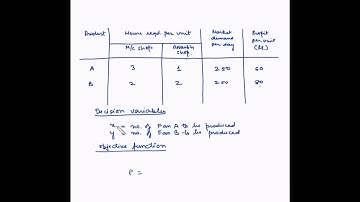 Product Hours reqd per unit Market demand per day Profit per unit (Rs.)
M/c shop Assembly shop
A 3 1 200 60
B 2 2 200 80
Decision variables
x = no. of Fan A to be produced
y = no. of Fan B to be produced
objective function
P =